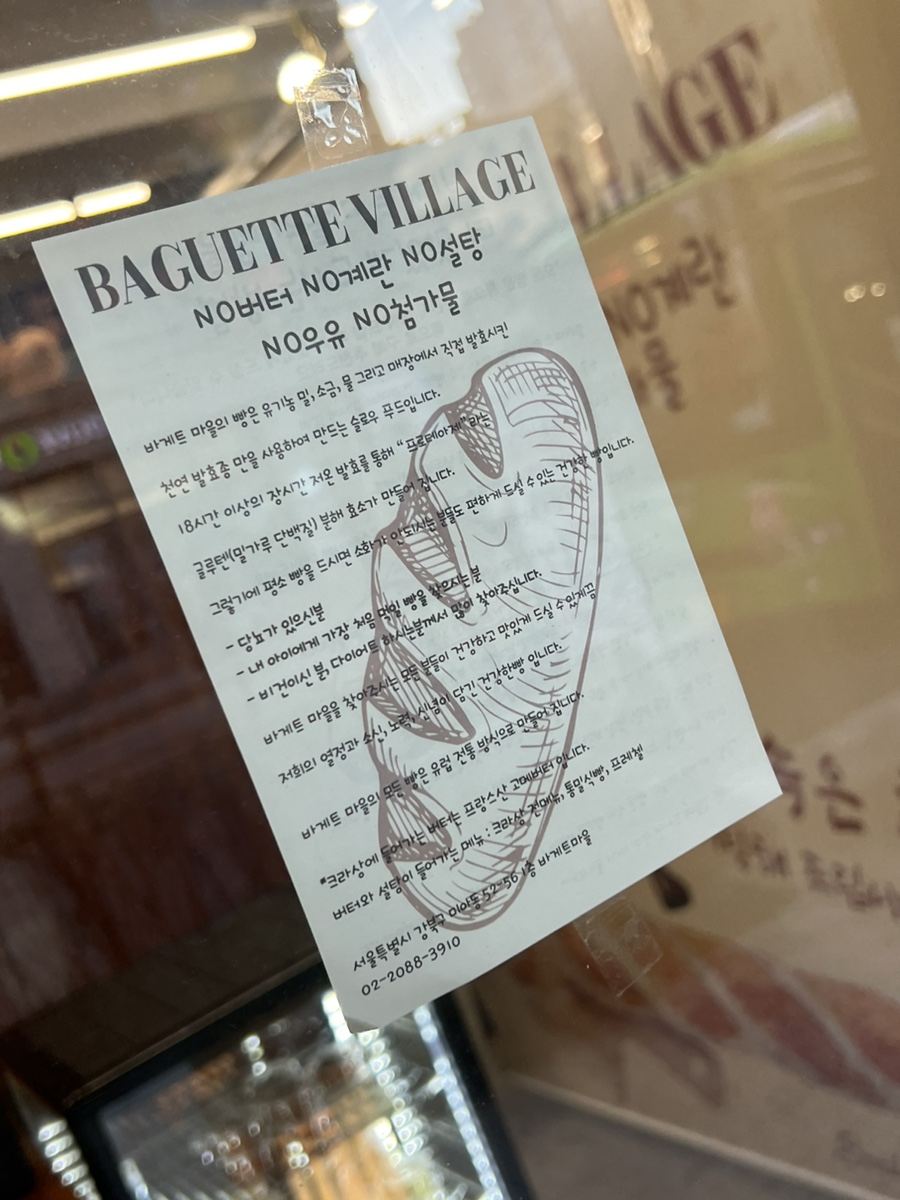 BAGUETTE VILLAGE
NO버터 NO계란 NO설탕
NO우유 NO첨가물
바게트 마을의 빵은 유기농 밀, 소금, 물 그리고 매장에서 직접 발효시킨
천연 발효종 만을 사용하여 만드는 슬로우 푸드입니다.
18시간 이상의 장시간 저온 발효를 통해 "프로테아제"라는
글루텐(밀가루 단백질) 분해 효소가 만들어 집니다.
그렇기에 평소 빵을 드시면 소화가 안되시는 분들도 편하게 드실 수 있는 건강한 빵입니다.
- 당뇨가 있으신분
- 내 아이에게 가장 처음 먹일 빵을 찾으시는 분
- 비건이신 분, 다이어트 하시는분께서 많이 찾아주십니다.
바게트 마을을 찾아주시는 모든 분들이 건강하고 맛있게 드실 수 있게끔
저희의 열정과 소신, 노력, 신념이 담긴 건강한빵 입니다.
바게트 마을의 모든 빵은 유럽 전통 방식으로 만들어 집니다.
*크라상에 들어가는 버터는 프랑스산 고메버터 입니다.
버터와 설탕이 들어가는 메뉴 : 크라상 전메뉴, 통밀식빵, 프레첼
서울특별시 강북구 미아동 52-56 1층 바게트마을
02-2088-3910
VILLAGE
NO계란